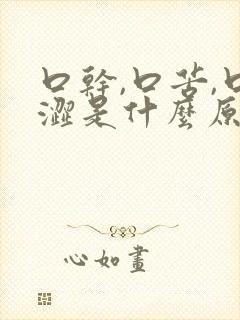 口幹,口苦,口
澀是什麼原
心如畫